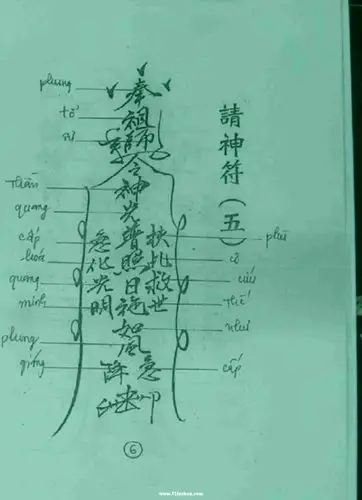 請神符（五）
奉
祖師
神光普照
扶乩救世
急化光明
日施
如風
急
降
phụng
tổ
sư
Thần
quang
cấp
hoá
quang
minh
phung
giáng
phù
cơ
cứu
Thế
như
cấp
6